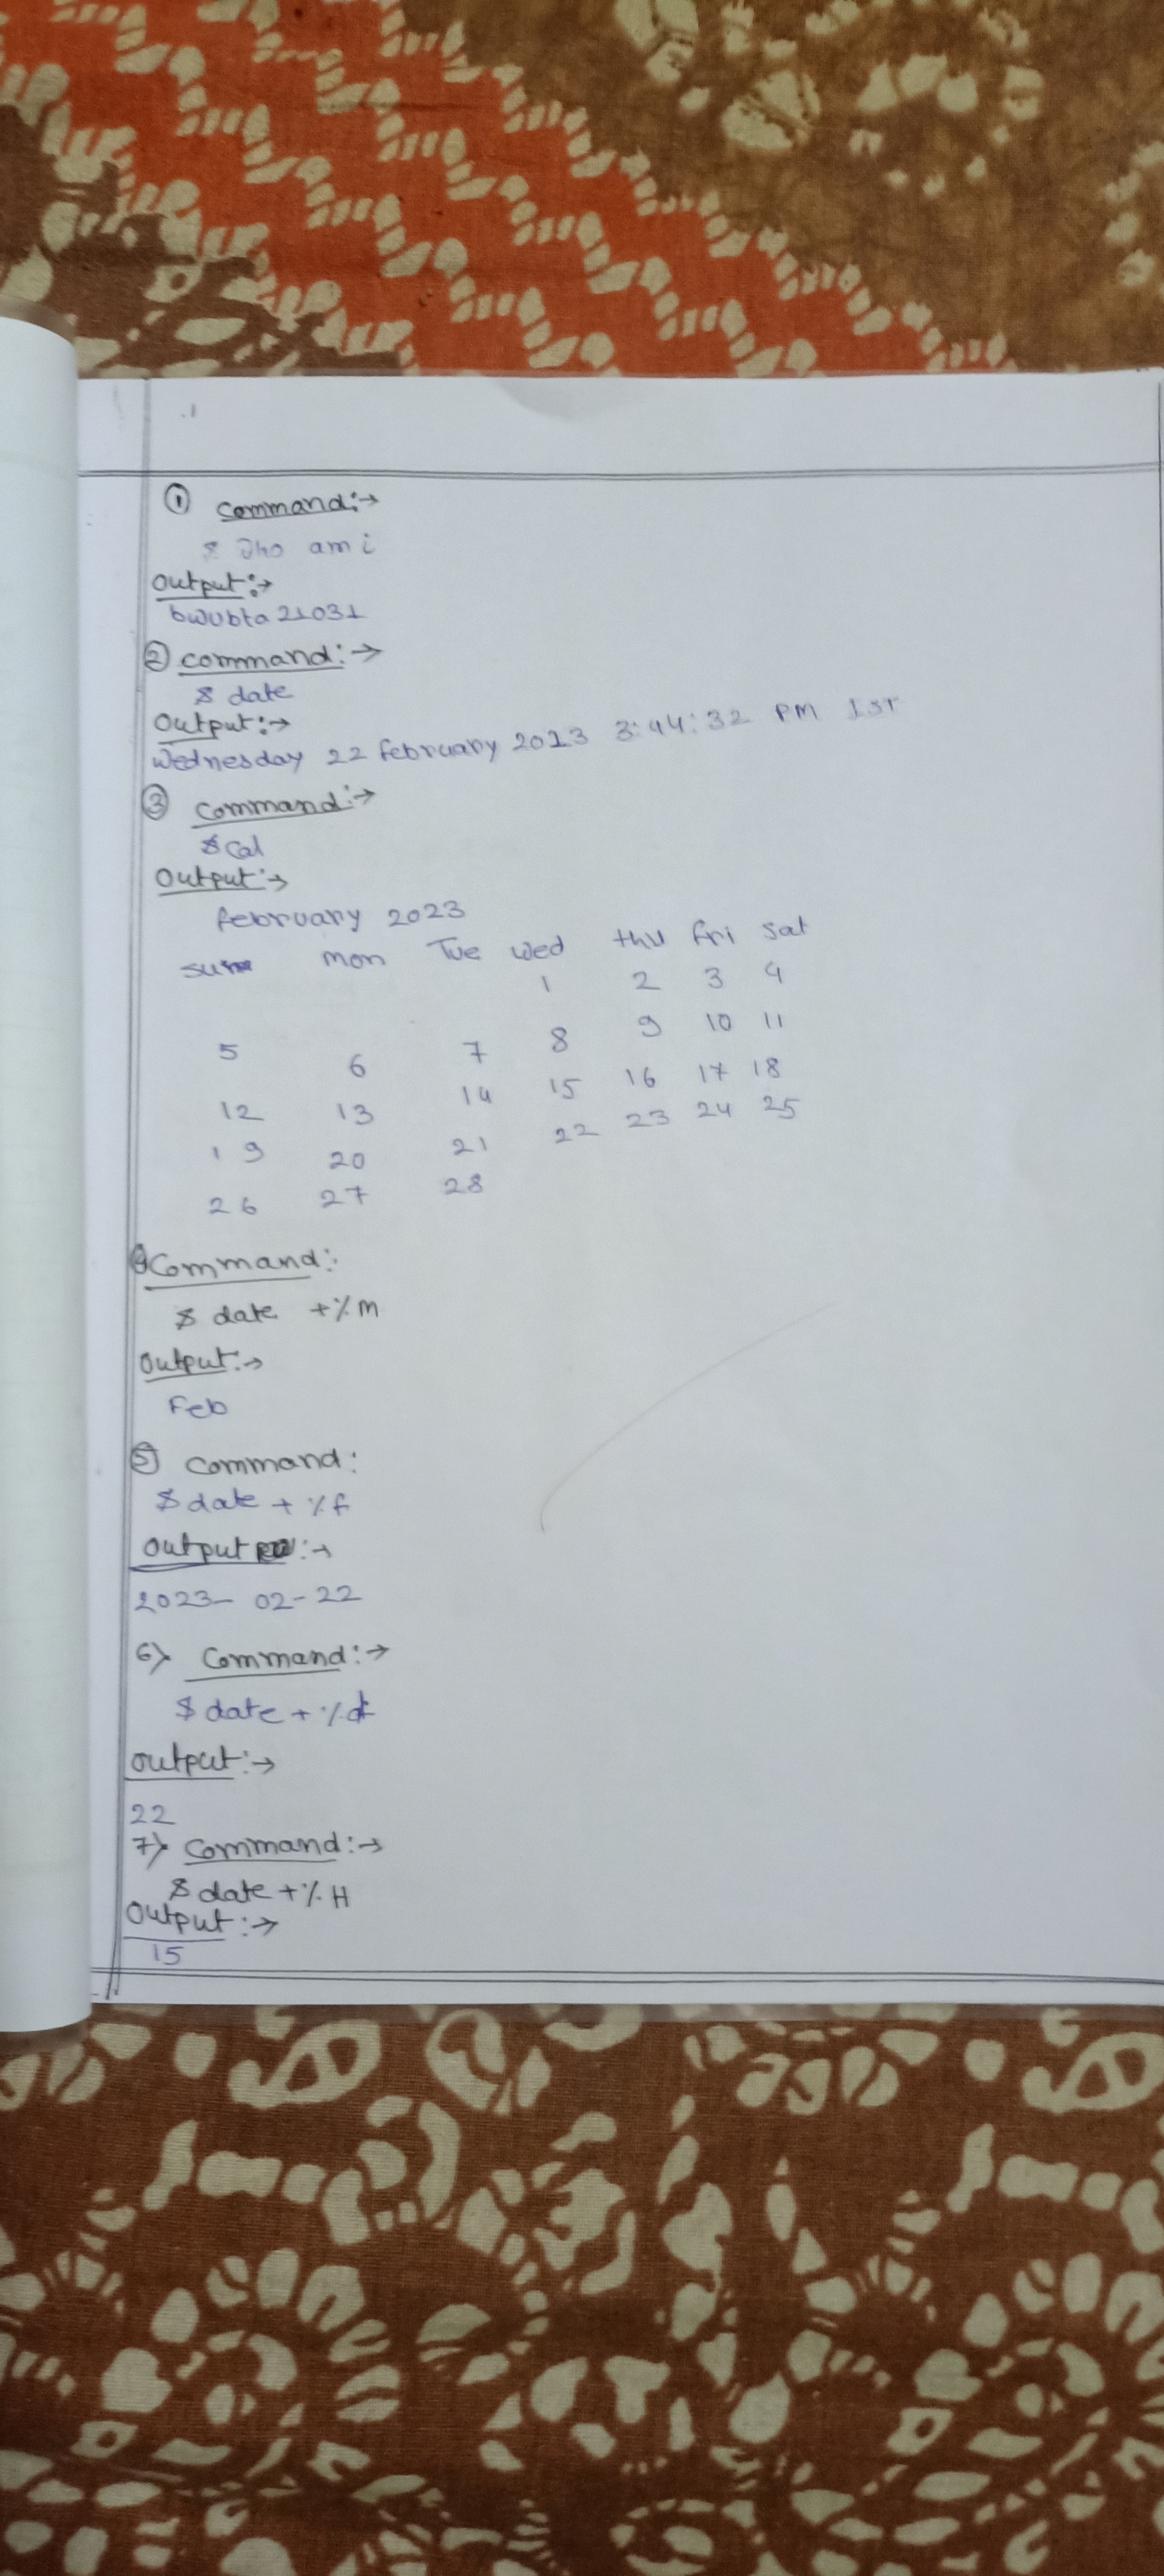 ① Command:→
$ who am i
Output:→
bwubta21031
② Command:→
$ date
Output:→
Wednesday 22 february 2023 3:44:32 PM IST
③ Command:→
$ cal
Output:→
february 2023
sun mon Tue wed thu fri sat
1 2 3 4
5 6 7 8 9 10 11
12 13 14 15 16 17 18
19 20 21 22 23 24 25
26 27 28
④ Command:
$ date +%m
Output:→
Feb
⑤ Command:
$ date + %f
Output:→
2023- 02-22
6) Command:→
$ date + %d
output:→
22
7) Command:→
$ date +% H
Output:→
15